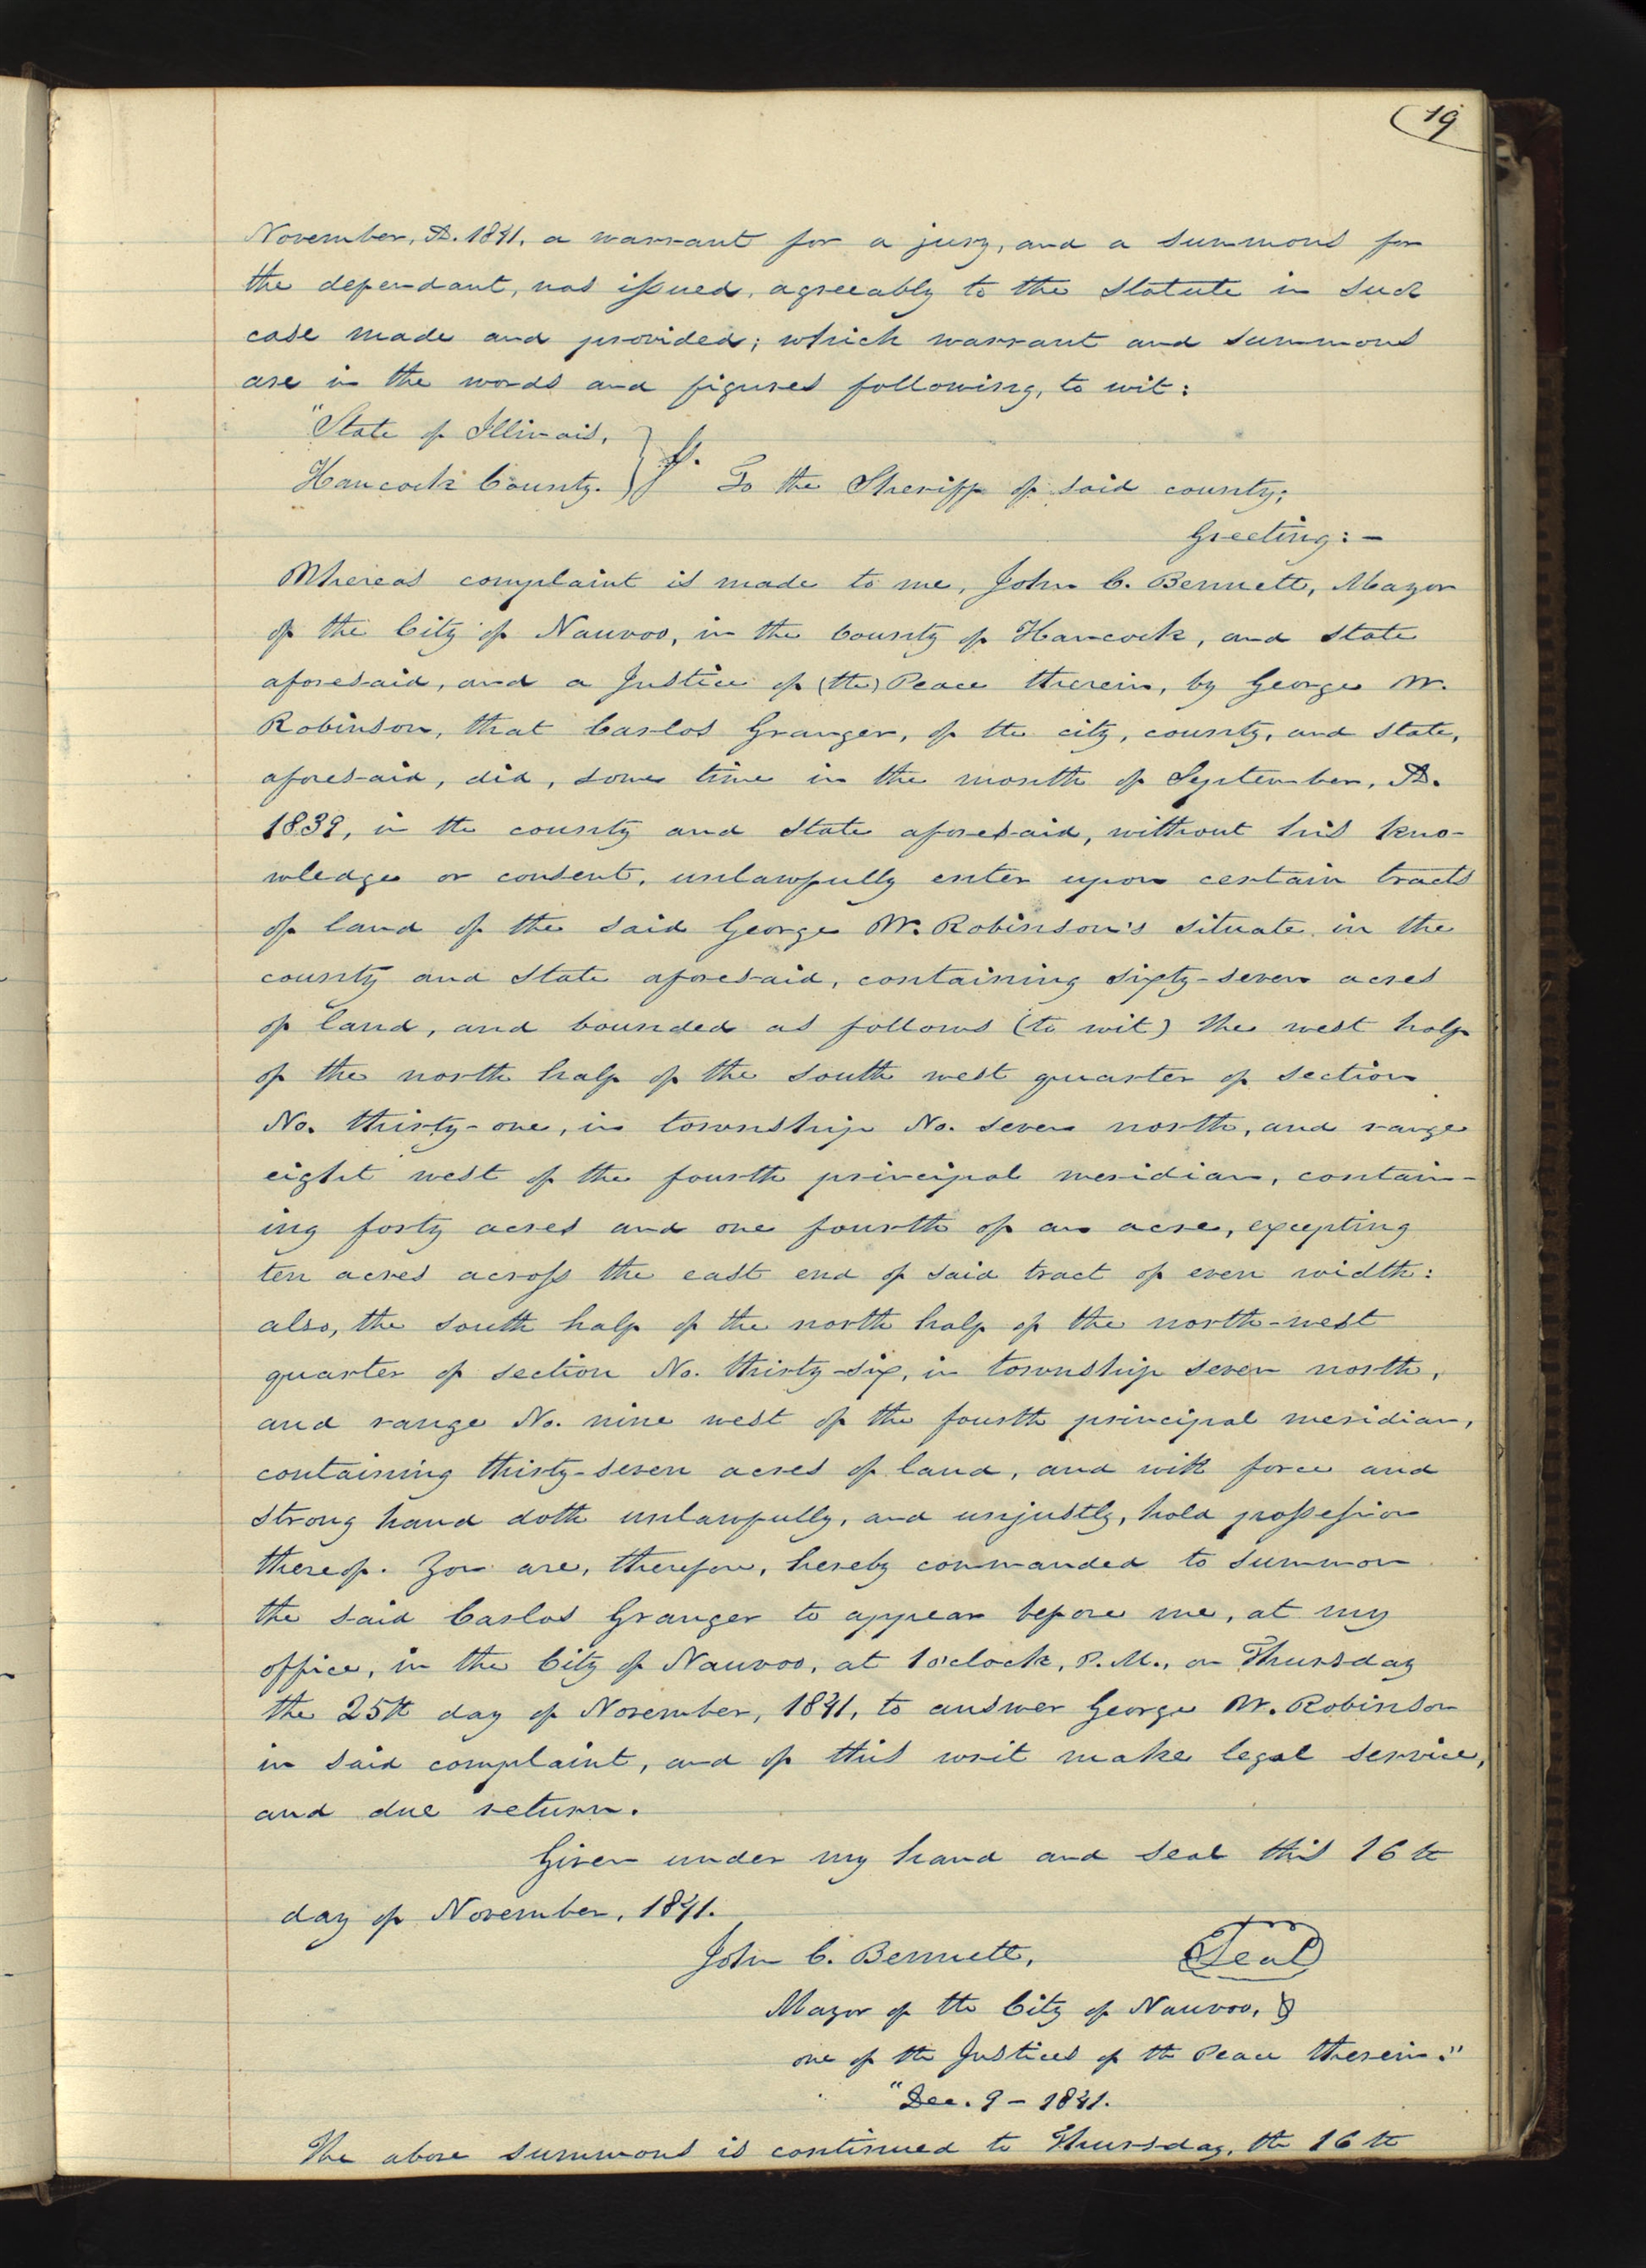 19
November, AD. 1841, a warrant for a jury, and a summons for
the defendant, was issued, agreeably to the statute in such
case made and provided; which warrant and summons
are in the words and figures following, to wit:
"State of Illinois,
Hancock County. } ss. To the Sheriff of said county;
Greeting: —
Whereas complaint is made to me, John C. Bennett, Mayor
of the City of Nauvoo, in the County of Hancock, and state
aforesaid, and a Justice of (the) Peace therein, by George W.
Robinson, that Carlos Granger, of the city, county, and state,
aforesaid, did, some time in the month of September, AD.
1839, in the county and state aforesaid, without his kno-
wledge or consent, unlawfully enter upon certain tracts
of land of the said George W. Robinson's situate in the
county and state aforesaid, containing sixty-seven acres
of land, and bounded as follows (to wit) the west half
of the north half of the south west quarter of section
No. thirty-one, in township No. seven north, and range
eight west of the fourth principal meridian, contain-
ing forty acres and one fourth of an acre, excepting
ten acres across the east end of said tract of even width:
also, the south half of the north half of the north-west
quarter of section No. thirty-six, in township seven north,
and range No. nine west of the fourth principal meridian,
containing thirty-seven acres of land, and with force and
strong hand doth unlawfully, and unjustly, hold possession
thereof. You are, therefore, hereby commanded to summon
the said Carlos Granger to appear before me, at my
office, in the City of Nauvoo, at 1 o'clock, P.M., on Thursday
the 25th day of November, 1841, to answer George W. Robinson
in said complaint, and of this writ make legal service,
and due return.
Given under my hand and seal this 16th
day of November, 1841.
John C. Bennett, Seal
Mayor of the City of Nauvoo, &
one of the Justices of the Peace therein."
"Dec. 9 – 1841.
The above summons is continued to Thursday, the 16th